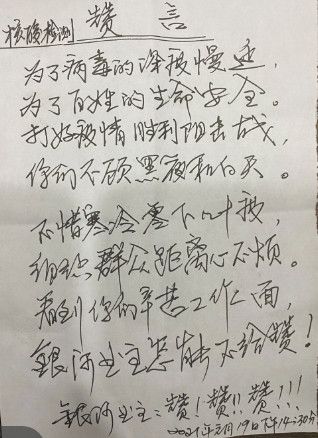 核酸检测 赞言
为了病毒的深被慢延，
为了百姓的生命安全。
打好被情胜利阻击战，
你们不顾黑夜和白天。
不惜寒冷零下几十被，
群众距离心不烦。
看到你们辛苦工作一面，
银河业主怎能不给赞！
银河业主：赞！赞!!赞!!!
2021年元月19日下午14:30分